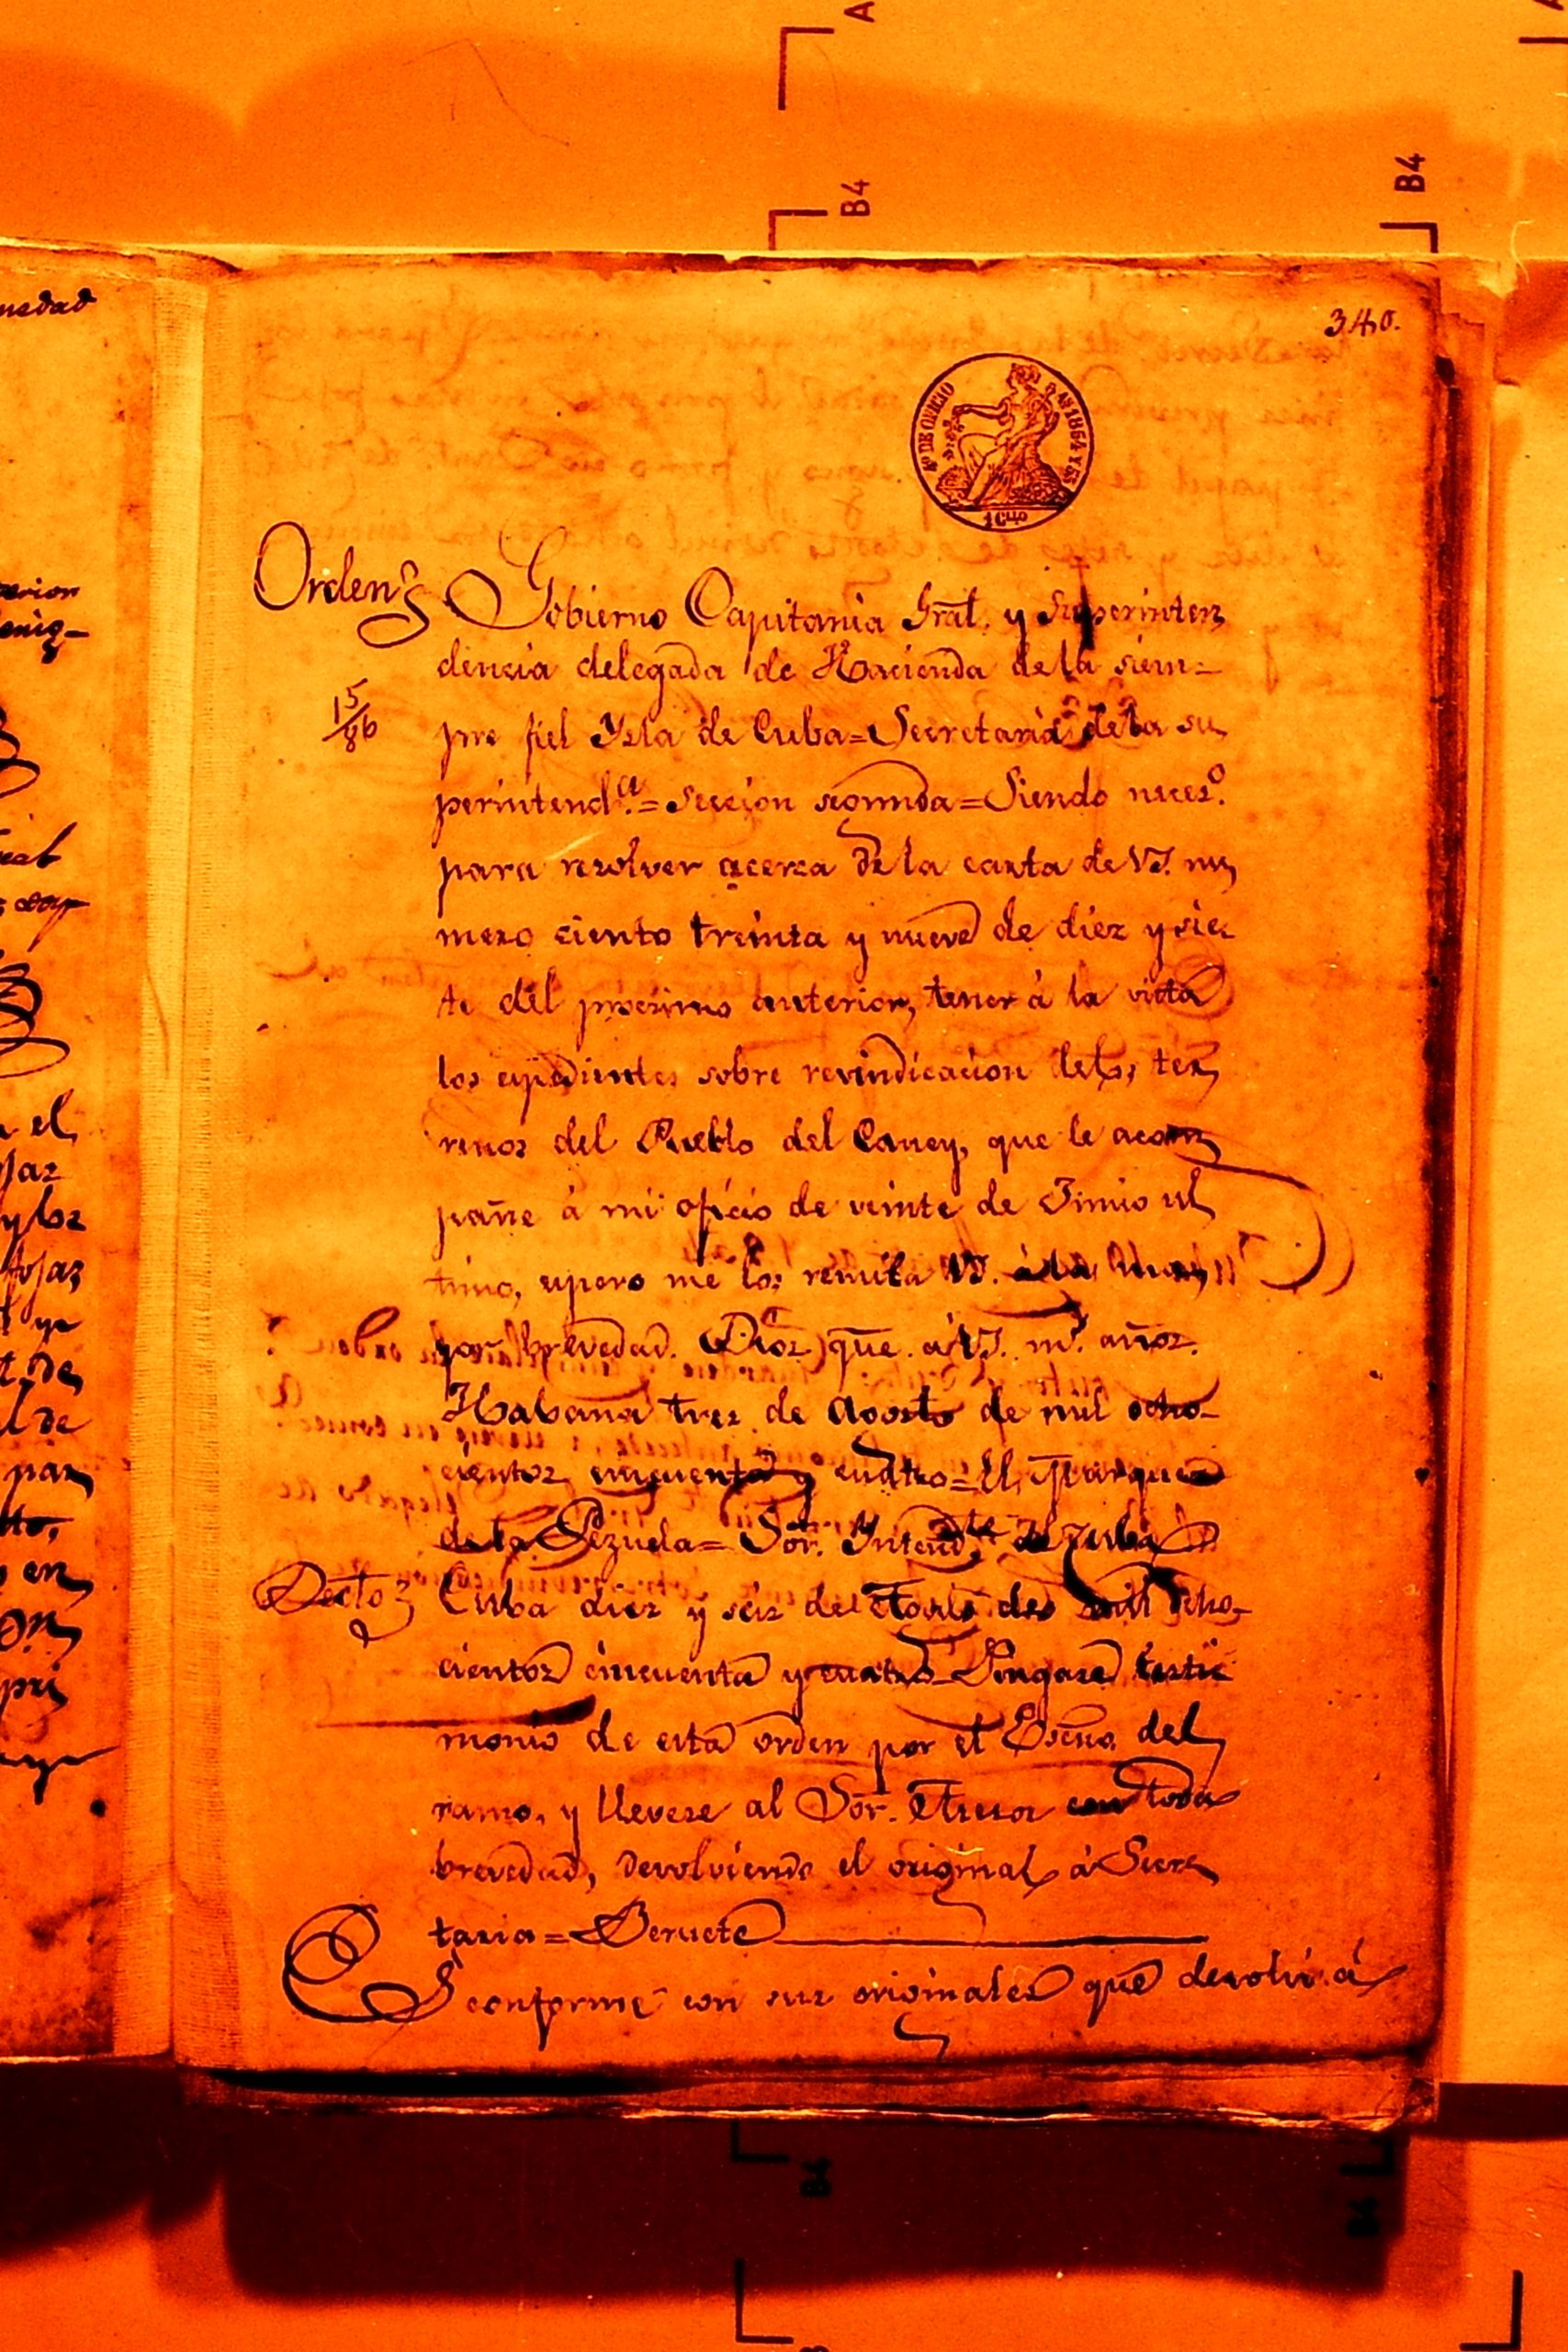 A
B4
B4
nedad
340.
4º DE OFICIO AS 1854 Y 55
Orden
Gobierno Capitania Gral. y Superinten
dencia delegada de Hacienda de la siem-
15/86
pre fiel Ysla de Cuba=Secretaria de la su
perintendª.=Seccion segunda=Siendo neces.º
para resolver acerca de la carta de VS. nu
mero ciento treinta y nueve de diez y sie
te del procsimo anterior, tener á la vista
los espedientes sobre revindicacion de los ter
renos del Pueblo del Caney, que le acom
pañe á mi oficio de veinte de Junio ul
timo, espero me los remita VS. á la may
por brevedad. Dios que. á VS. mˢ. años.
Habana tres de Agosto de mil ocho-
cientos cincuenta y cuatro=El Marques
de la Pezuela=Sor. Yntendᵗᵉ de Cuba
Decto
Cuba diez y seis de Agosto de mil ocho-
cientos cincuenta y cuatro=Pongase testi
monio de esta orden por el Escno. del
ramo, y llevese al Sor. con toda
brevedad, devolviendo el original á Secre
taria=Beruete
Es conforme con sus originales que devolví á
el
y los
de
l de
par
en
B4
B4